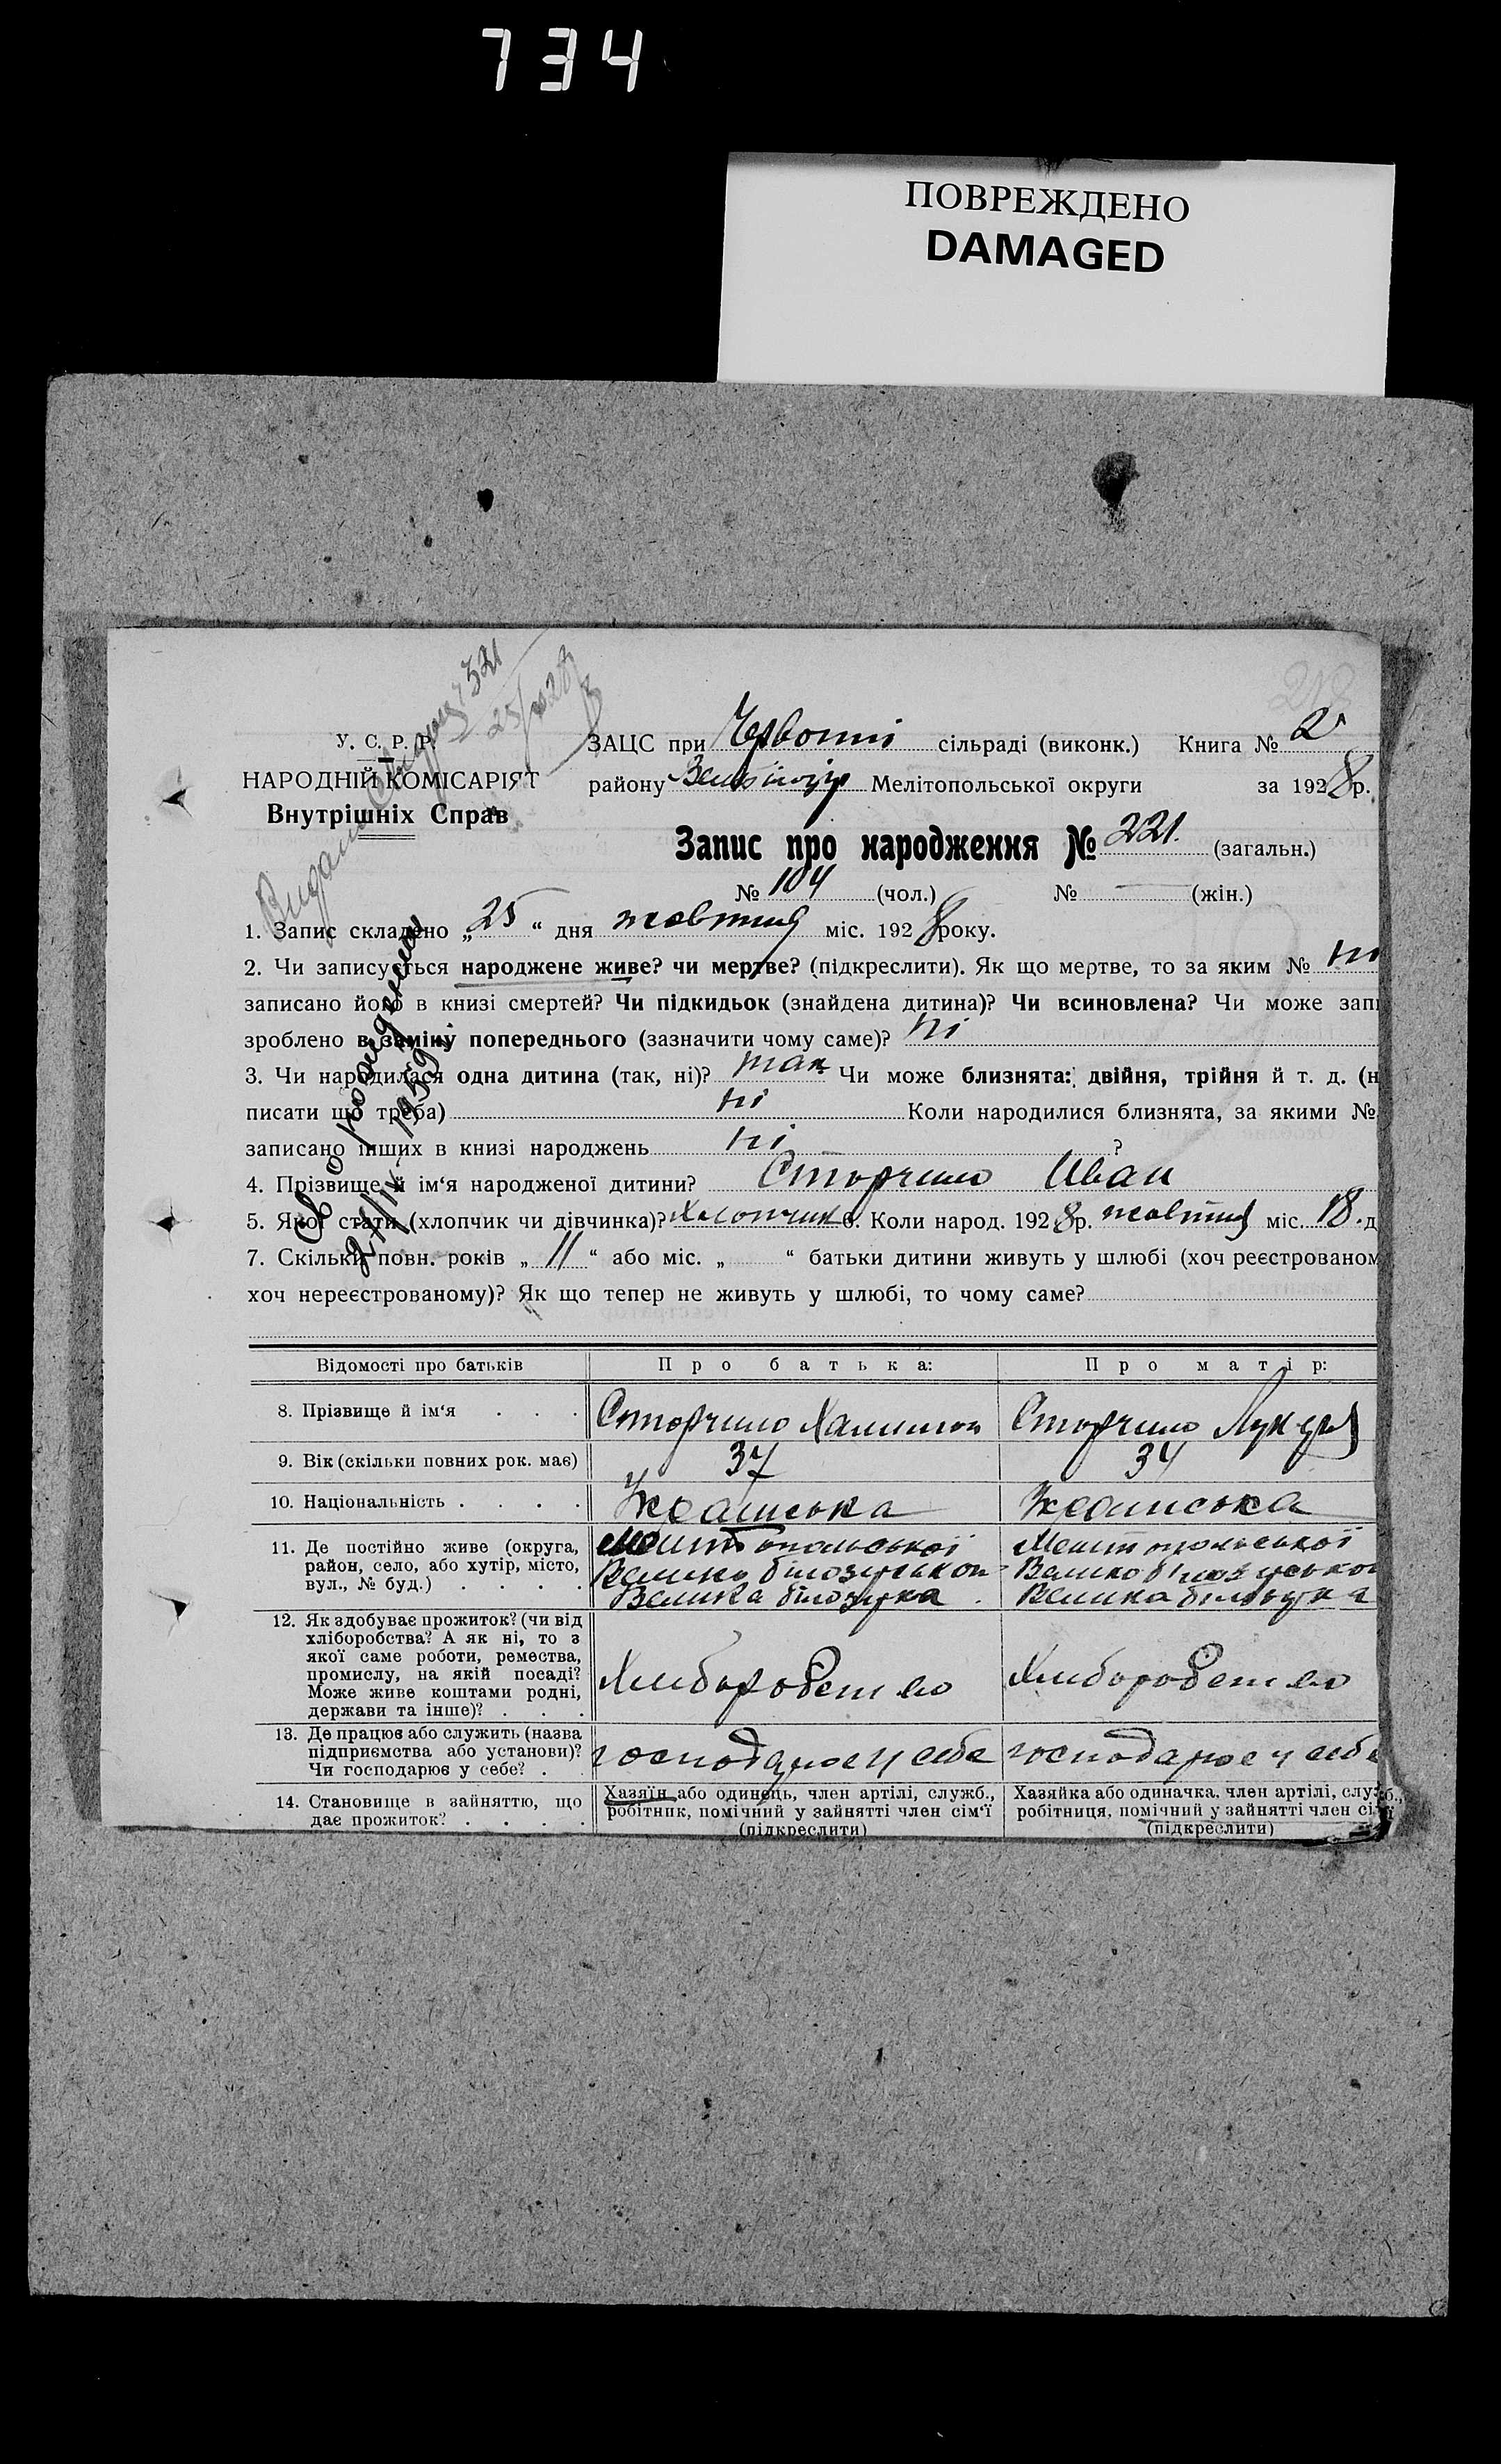 734
ПОВРЕЖДЕНО
DAMAGED
У. С. Р. Р.
НАРОДНІЙ КОМІСАРІЯТ
Внутрішніх Справ
ЗАЦС при Червоній сільраді (виконк.) Книга № 2
району Мелітопольської округи за 1928 р.
Запис про народження № 221. (загальн.)
№ 104 (чол.) № — (жін.)
1. Запис складено „25“ дня жовтня міс. 1928 року.
2. Чи записується народжене живе? чи мертве? (підкреслити). Як що мертве, то за яким № ні
записано його в книзі смертей? Чи підкидьок (знайдена дитина)? Чи всиновлена? Чи може
зроблено в заміну попереднього (зазначити чому саме)? ні
3. Чи народилася одна дитина (так, ні)? так Чи може близнята: двійня, трійня й т. д. (н
писати що треба) ні Коли народилися близнята, за якими №
записано інших в книзі народжень ні ?
4. Прізвище й ім‘я народженої дитини? Сторчило Иван
5. Якої стати (хлопчик чи дівчинка)? Хлопчик 6. Коли народ. 1928 р. жовтня міс. 18. д
7. Скільки повн. років „11“ або міс. „ “ батьки дитини живуть у шлюбі (хоч реєстрованом
хоч нереєстрованому)? Як що тепер не живуть у шлюбі, то чому саме?
Св о рождении
21/IV 1959
Відомості про батьків
Про батька:
Про матір:
8. Прізвище й ім‘я . . .
Сторчило
Сторчило
9. Вік (скільки повних рок. має)
37
34
10. Національність . . . .
Українська
Українська
11. Де постійно живе (округа,
район, село, або хутір, місто,
вул., № буд.) . . . .
Мелітопольської
Велико білозірської
Велика білозірка
Мелітопольської
Велико білозірської
Велика білозірка
12. Як здобуває прожиток? (чи від
хліборобства? А як ні, то з
якої саме роботи, ремества,
промислу, на якій посаді?
Може живе коштами родні,
держави та інше)? . . .
Хліборобство
Хліборобство
13. Де працює або служить (назва
підприємства або установи)?
Чи господарює у себе? .
господарює у себе
господарює у себе
14. Становище в зайняттю, що
дає прожиток? . . . .
Хазяїн або одинець, член артілі, служб.,
робітник, помічний у зайнятті член сім‘ї
(підкреслити)
Хазяйка або одиначка, член артілі, служб.,
робітниця, помічний у зайнятті член сім‘ї
(підкреслити)